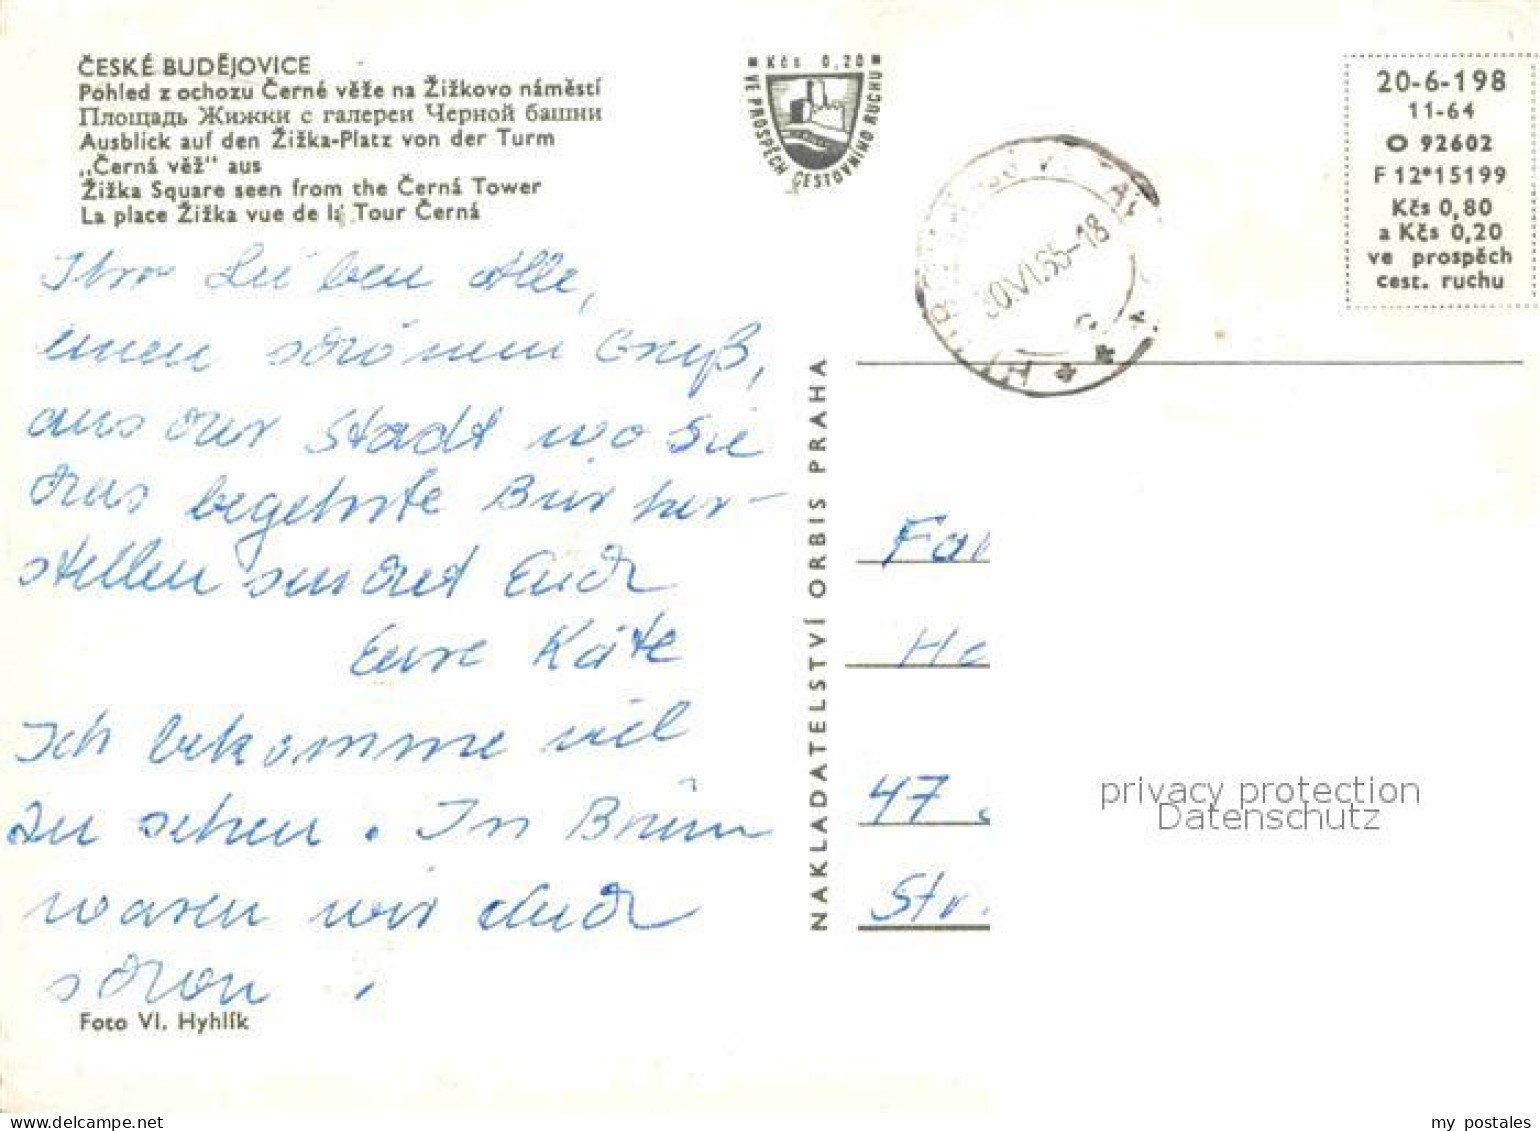 ČESKÉ BUDĚJOVICE
Pohled z ochozu Černé věže na Žižkovo náměstí
Площадь Жижки с галереи Черной башни
Ausblick auf den Žižka-Platz von der Turm
„Černá věž" aus
Žižka Square seen from the Černá Tower
La place Žižka vue de la Tour Černá
Ihr Lieben Alle,
einen schönen Gruß,
aus der Stadt wo Sie
das begehrte Bier her-
stellen sendet Euch
Eure Käte
Ich bekomme viel
zu sehen. In Brünn
waren wir auch
schon.
Foto Vl. Hyhlík
Kčs 0,20
VE PROSPĚCH CESTOVNÍHO RUCHU
NAKLADATELSTVÍ ORBIS PRAHA
30.VI.65-18
20-6-198
11-64
O 92602
F 12*15199
Kčs 0,80
a Kčs 0,20
ve prospěch
cest. ruchu
Fa
H
47
Str.
privacy protection
Datenschutz
my postales